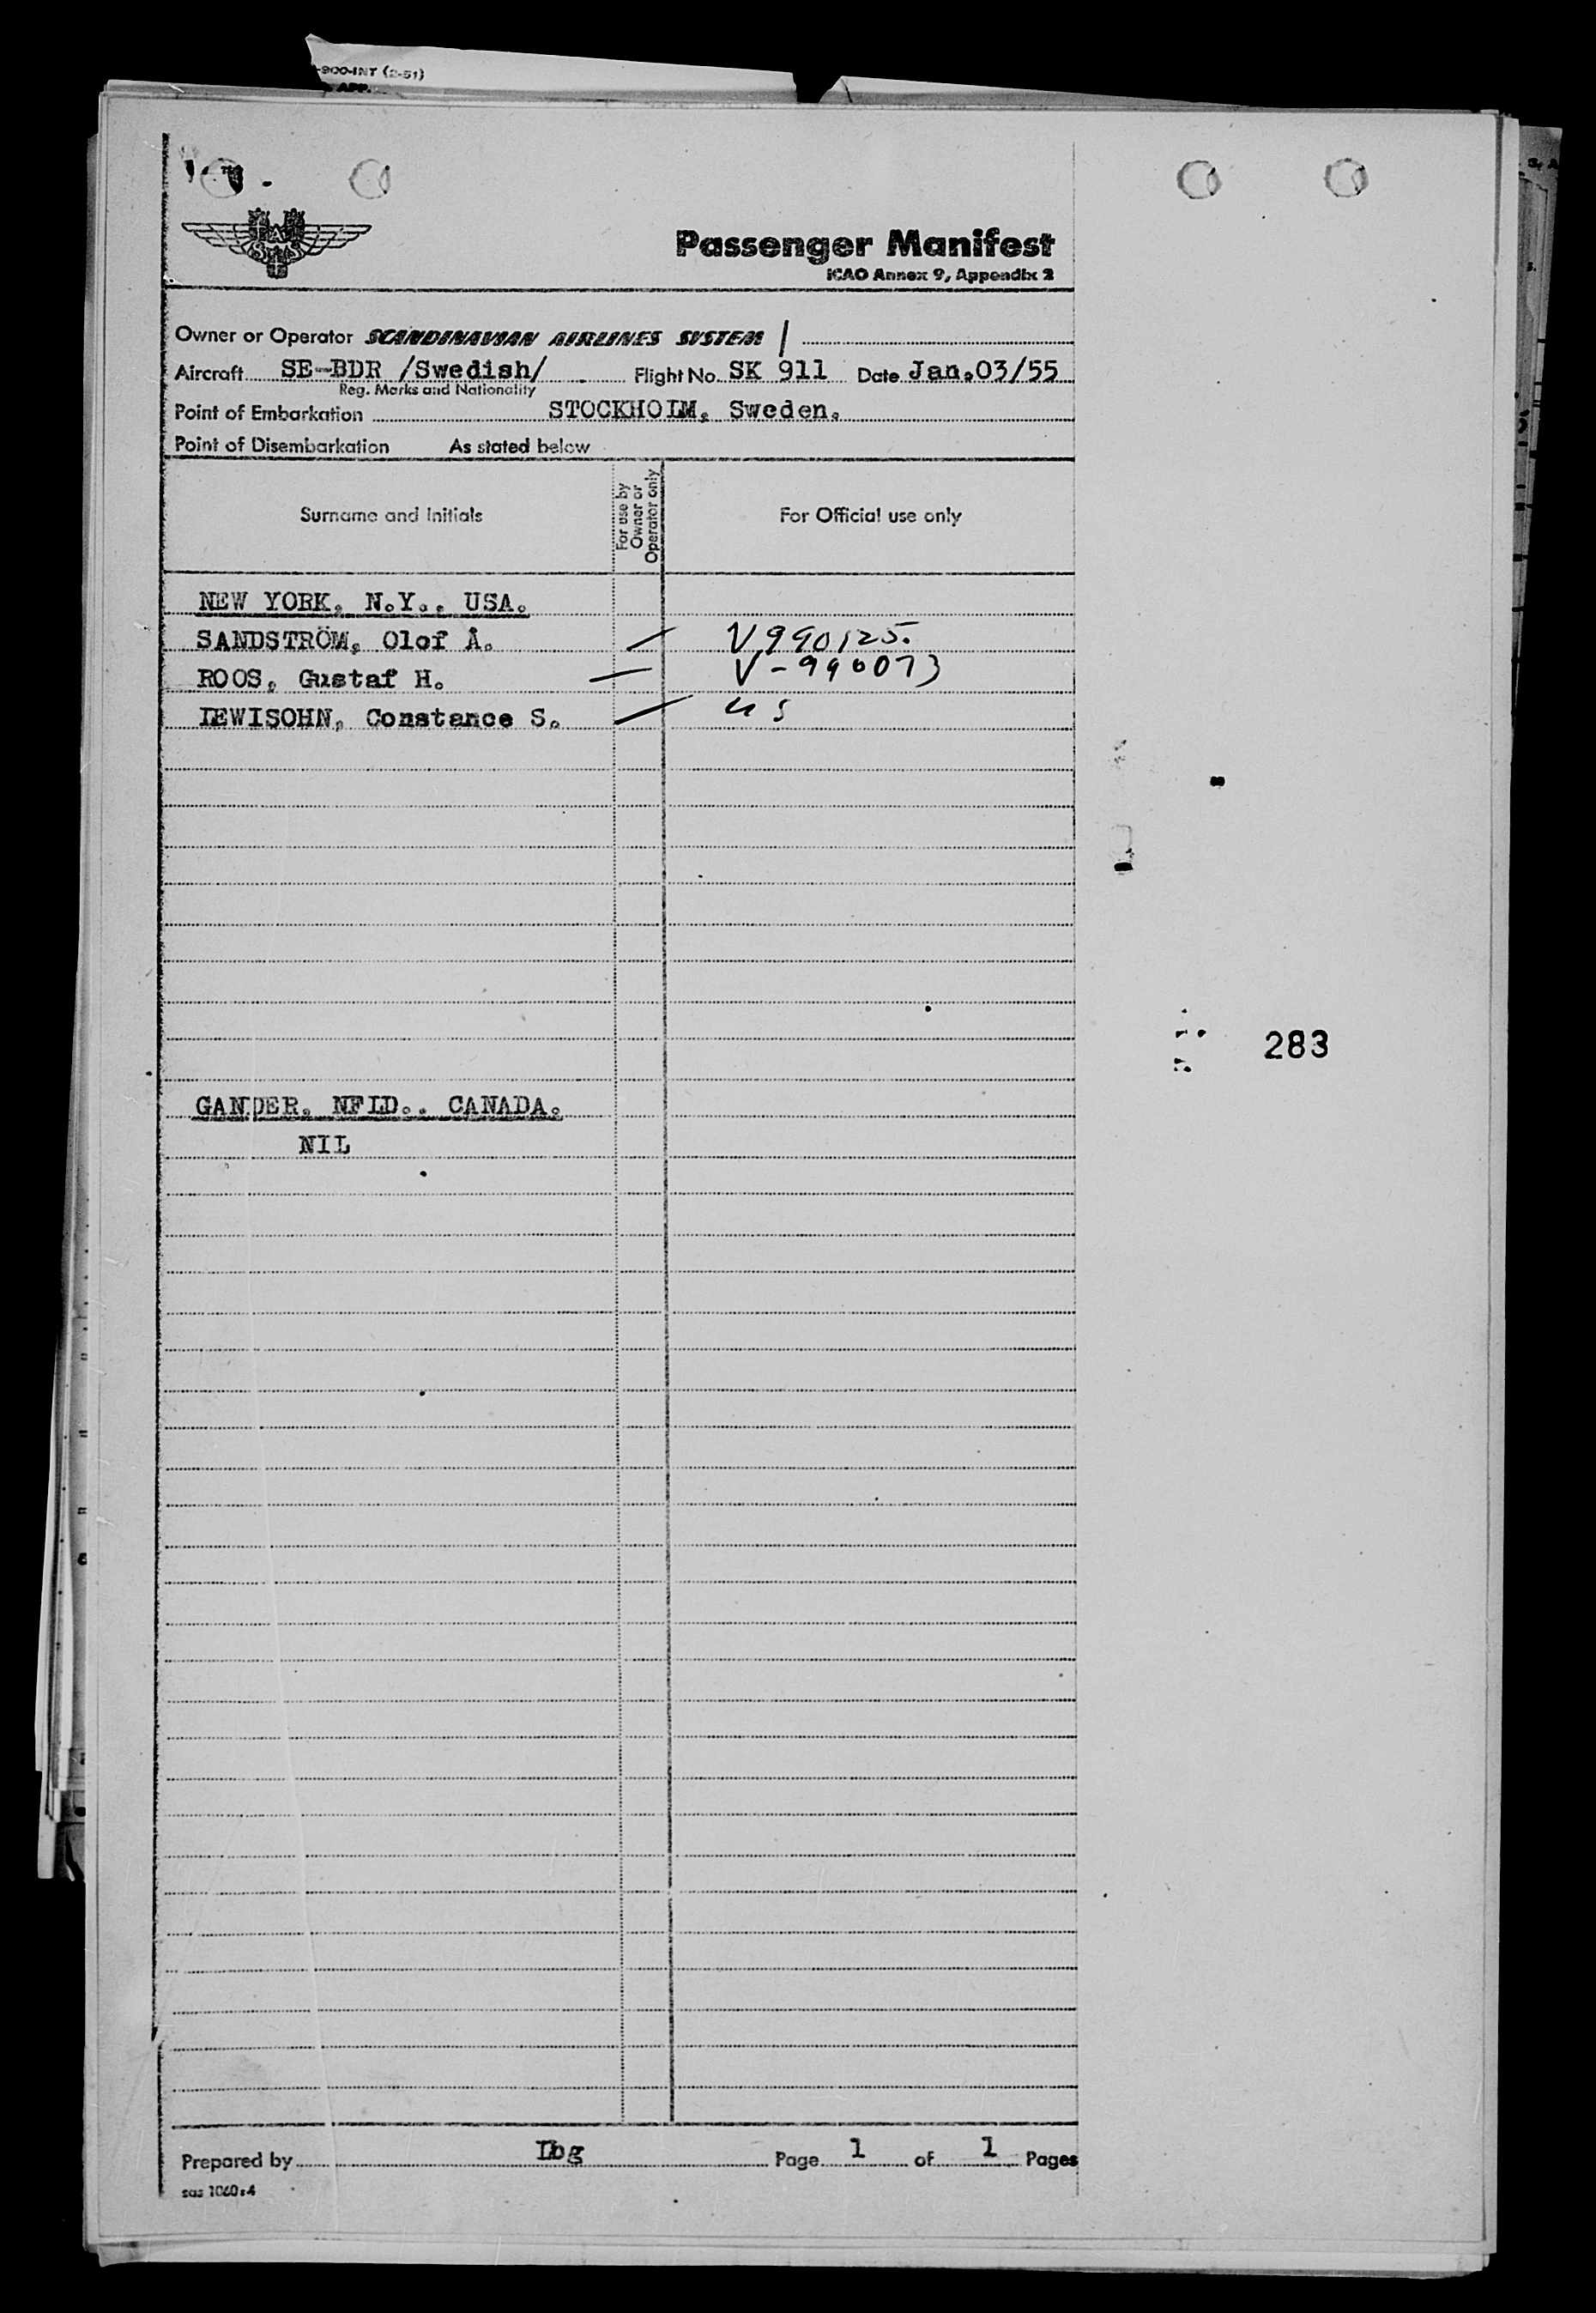 -900-INT (2-51)
APP.
SAS
Passenger Manifest
ICAO Annex 9, Appendix 2
Owner or Operator SCANDINAVIAN AIRLINES SYSTEM
Aircraft SE-BDR /Swedish/ Flight No. SK 911 Date Jan.03/55
Reg. Marks and Nationality
Point of Embarkation STOCKHOLM, Sweden.
Point of Disembarkation As stated below
Surname and Initials
For use by
Owner or
Operator only
For Official use only
NEW YORK, N.Y., USA.
SANDSTRÖM, Olof Å. V990125.
ROOS, Gustaf H. V-990073
LEWISOHN, Constance S. US
283
GANDER, NFLD., CANADA.
NIL
Prepared by Lbg Page 1 of 1 Pages
sas 1060:4